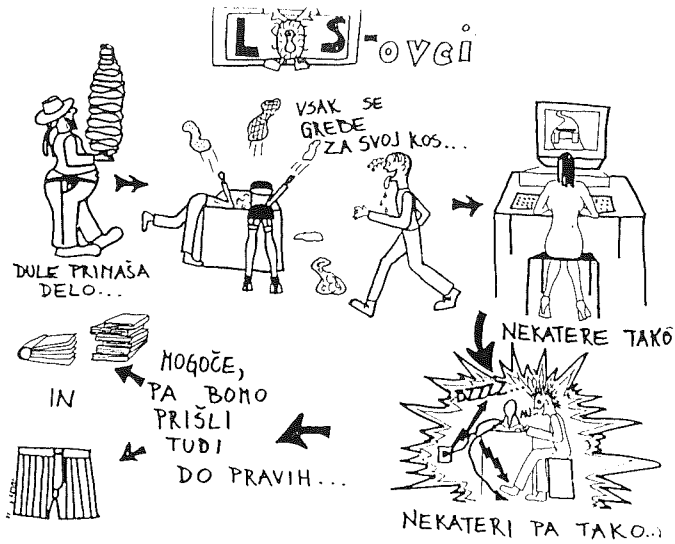 LOŠ-ovci
VSAK SE
GREBE
ZA SVOJ KOS...
DULE PRINAŠA
DELO...
NEKATERE TAKO
BZZZZ...
NEKATERI PA TAKO...
MOGOČE,
PA BOMO
PRIŠLI
TUDI
DO PRAVIH...
IN